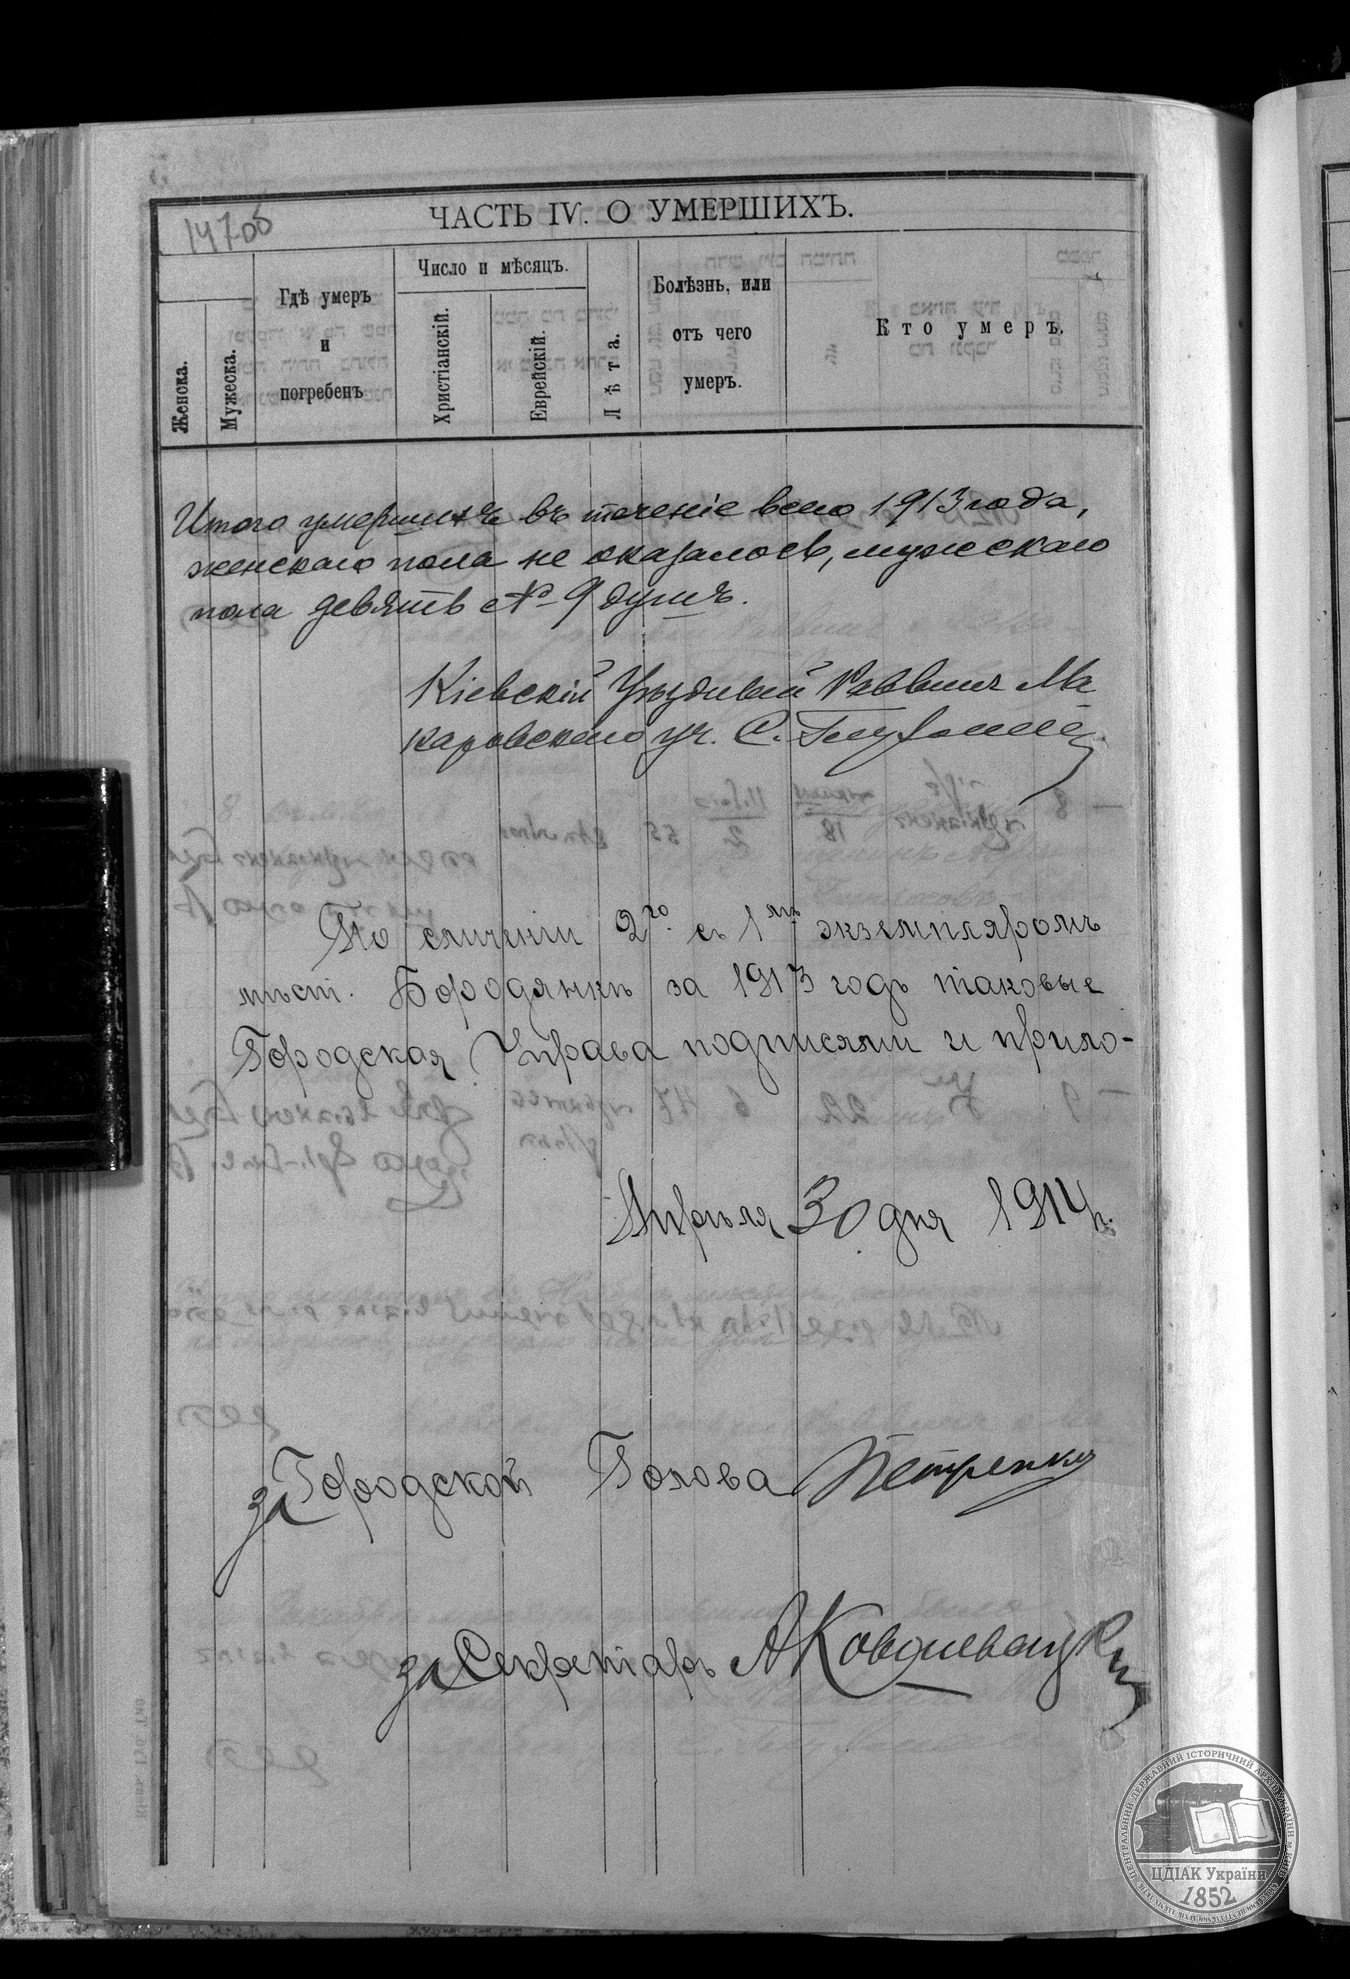 14705
ЧАСТЬ IV. О УМЕРШИХЪ.
Женска.
Мужеска.
Гдѣ умеръ
и
погребенъ
Число и мѣсяцъ.
Христіанскій.
Еврейскій.
Лѣта.
Болѣзнь, или
отъ чего
умеръ.
Кто умеръ.
Итого умершихъ въ теченіе всего 1913 года,
женскаго пола не оказалось, мужскаго
пола девять № 9 душъ.
Кіевскій Уѣздный Раввинъ Ма
каровскаго уч. С.
По сличеніи 2го. съ 1мъ экземпляромъ
мѣст. Бородянкѣ за 1913 годъ таковые
Городская Управа подписями и прило-
Апрѣля 30 дня 1914 г.
за Городской Голова Петренко
за Секретарь А Ковалевскій
ЦЕНТРАЛЬНИЙ ДЕРЖАВНИЙ ІСТОРИЧНИЙ АРХІВ УКРАЇНИ М. КИЇВ
ЦДІАК України
1852